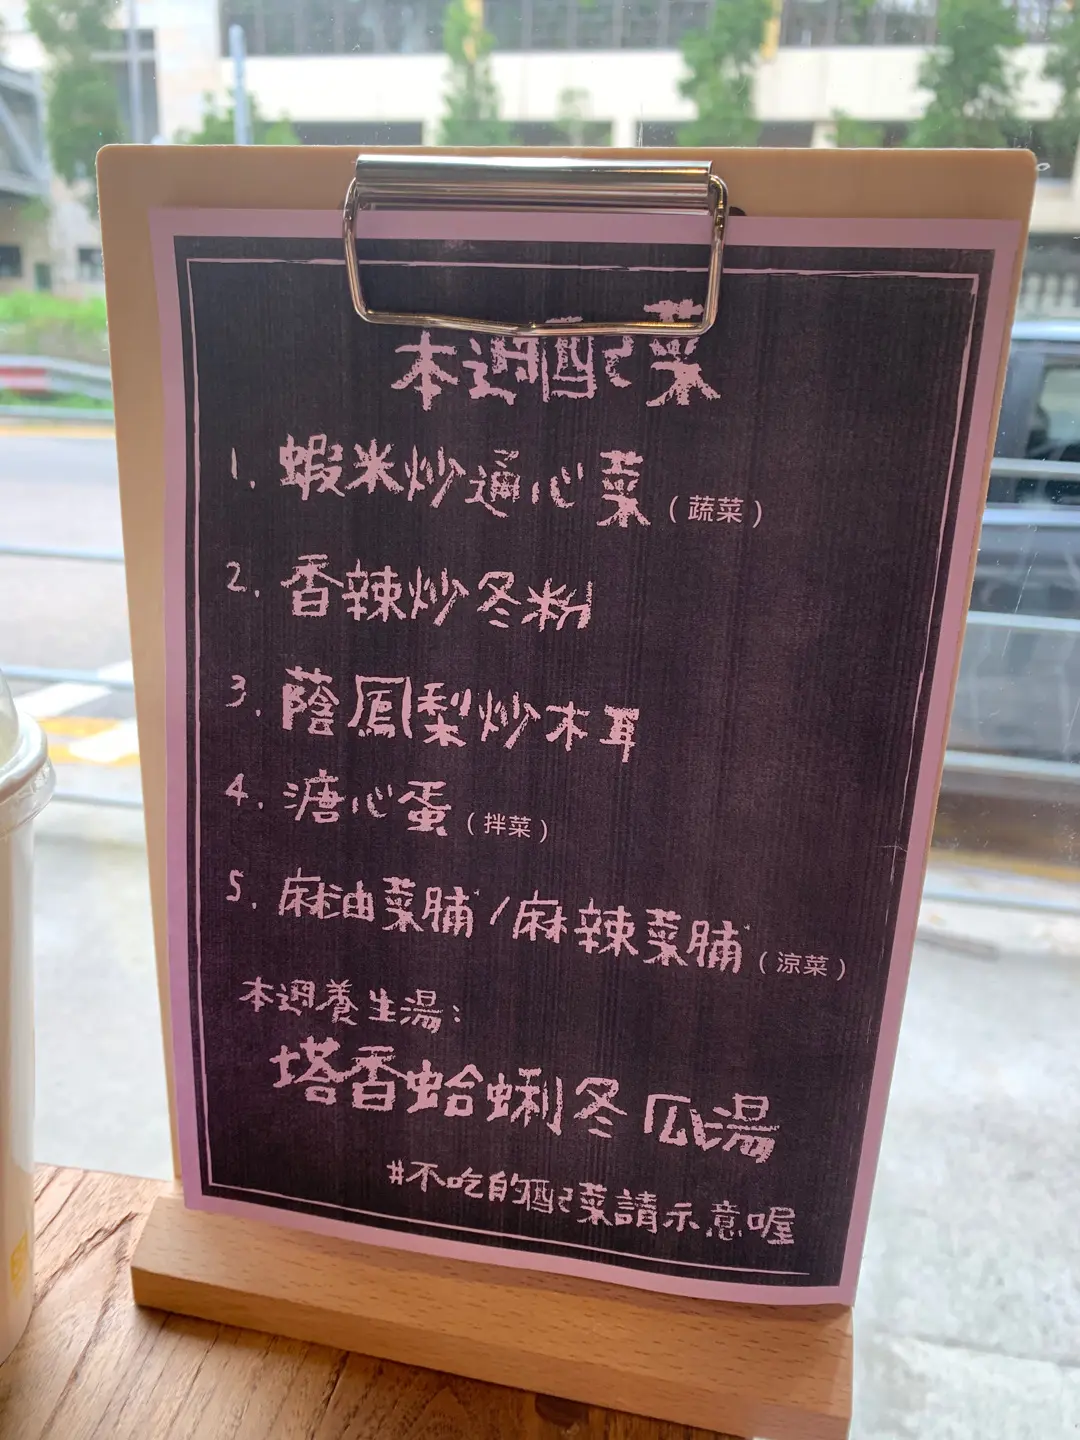 本週配菜
1. 蝦米炒通心菜(蔬菜)
2. 香辣炒冬粉
3. 蔭鳳梨炒木耳
4. 溏心蛋(拌菜)
5. 麻油菜脯/麻辣菜脯(涼菜)
本週養生湯:
塔香蛤蜊冬瓜湯
#不吃的配菜請示意喔